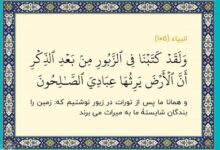 انبیاء (۱۰۵)
وَلَقَدْ كَتَبْنَا فِى ٱلزَّبُورِ مِنۢ بَعْدِ ٱلذِّكْرِ
أَنَّ ٱلْأَرْضَ يَرِثُهَا عِبَادِىَ ٱلصَّـٰلِحُونَ
و همانا ما پس از تورات در زبور نوشتیم که: زمین را
بندگان شایستهٔ ما به میراث می برند